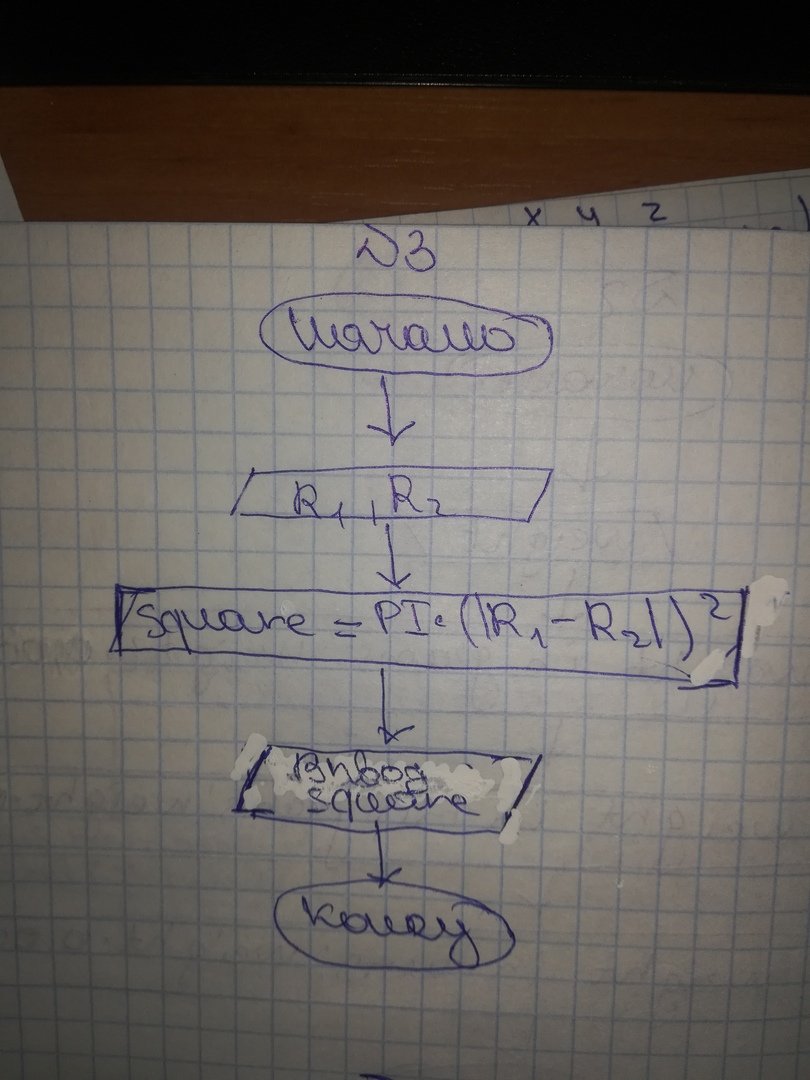 x y z
№3
Начало
R₁, R₂
Square = PI·(|R₁-R₂|)²
Вывод
square
Конец